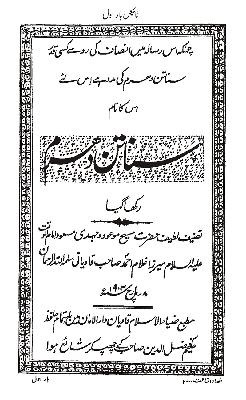 ٹائٹل بار اول
چونکہ اس رسالہ میں انصاف کی رو سے کسی قدر
سناتن دھرم کی مدد ہے اس لئے
اس کا نام
سناتن دھرم
رکھا گیا
تصنیف لطیف حضرت مسیح موعود و مہدی مسعود امام الوقت
علیہ السلام میرزا غلام احمد صاحب قادیانی سلمہ اللہ الرحمان
۸ مارچ ۱۹۰۳ء
مطبع ضیاء الاسلام قادیان دارالامان میں باہتمام حافظ
حکیم فضل الدین صاحب کے چھپ کر شائع ہوا